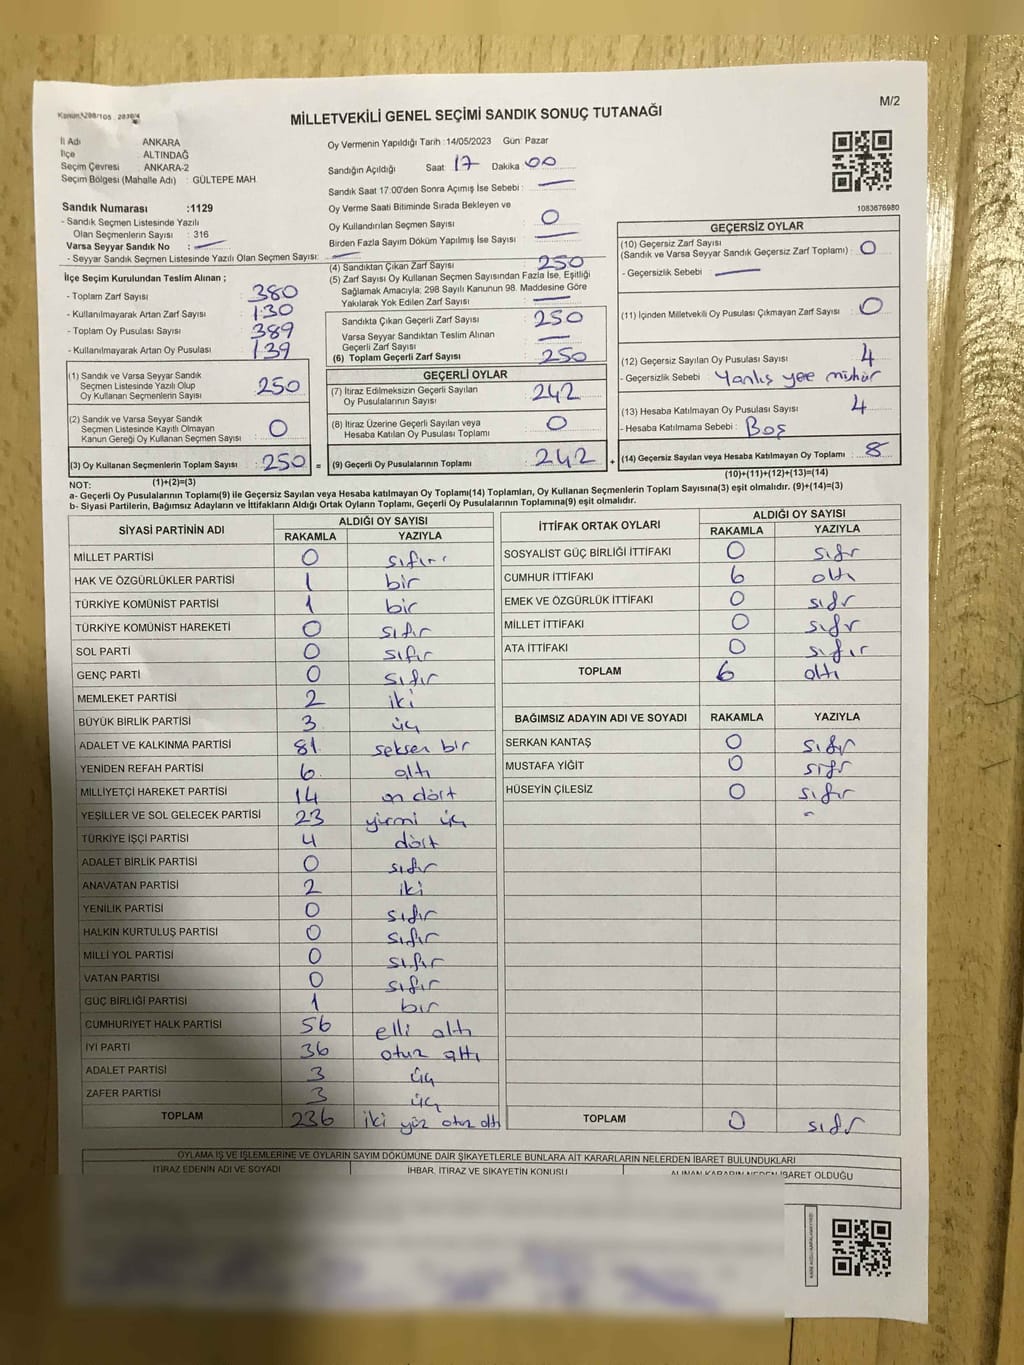 M/2
MİLLETVEKİLİ GENEL SEÇİMİ SANDIK SONUÇ TUTANAĞI
İl Adı ANKARA
İlçe : ALTINDAĞ
Seçim Çevresi : ANKARA-2
Seçim Bölgesi (Mahalle Adı) : GÜLTEPE MAH.
Oy Vermenin Yapıldığı Tarih :14/05/2023 Gün: Pazar
Sandığın Açıldığı Saat 17 Dakika 00
Sandık Saat 17:00'den Sonra Açımış İse Sebebi : —
Oy Verme Saati Bitiminde Sırada Bekleyen ve
Oy Kullandırılan Seçmen Sayısı 0
Birden Fazla Sayım Döküm Yapılmış İse Sayısı —
1083676980
Sandık Numarası :1129
- Sandık Seçmen Listesinde Yazılı
Olan Seçmenlerin Sayısı : 316
Varsa Seyyar Sandık No : —
- Seyyar Sandık Seçmen Listesinde Yazılı Olan Seçmen Sayısı: —
İlçe Seçim Kurulundan Teslim Alınan ;
- Toplam Zarf Sayısı 380
- Kullanılmayarak Artan Zarf Sayısı 130
- Toplam Oy Pusulası Sayısı 389
- Kullanılmayarak Artan Oy Pusulası 139
(1) Sandık ve Varsa Seyyar Sandık
Seçmen Listesinde Yazılı Olup
Oy Kullanan Seçmenlerin Sayısı 250
(2) Sandık ve Varsa Seyyar Sandık
Seçmen Listesinde Kayıtlı Olmayan
Kanun Gereği Oy Kullanan Seçmen Sayısı 0
(3) Oy Kullanan Seçmenlerin Toplam Sayısı 250 =
(1)+(2)=(3)
(4) Sandıktan Çıkan Zarf Sayısı 250
(5) Zarf Sayısı Oy Kullanan Seçmen Sayısından Fazla İse, Eşitliği
Sağlamak Amacıyla; 298 Sayılı Kanunun 98. Maddesine Göre
Yakılarak Yok Edilen Zarf Sayısı : —
Sandıkta Çıkan Geçerli Zarf Sayısı 250
Varsa Seyyar Sandıktan Teslim Alınan
Geçerli Zarf Sayısı —
(6) Toplam Geçerli Zarf Sayısı 250
GEÇERLİ OYLAR
(7) İtiraz Edilmeksizin Geçerli Sayılan
Oy Pusulalarının Sayısı 242
(8) İtiraz Üzerine Geçerli Sayılan veya
Hesaba Katılan Oy Pusulası Toplamı 0
(9) Geçerli Oy Pusulalarının Toplamı 242 +
GEÇERSİZ OYLAR
(10) Geçersiz Zarf Sayısı
(Sandık ve Varsa Seyyar Sandık Geçersiz Zarf Toplamı) : 0
- Geçersizlik Sebebi : —
(11) İçinden Milletvekili Oy Pusulası Çıkmayan Zarf Sayısı : 0
(12) Geçersiz Sayılan Oy Pusulası Sayısı 4
- Geçersizlik Sebebi : Yanlış yere mühür
(13) Hesaba Katılmayan Oy Pusulası Sayısı 4
- Hesaba Katılmama Sebebi : Boş
(14) Geçersiz Sayılan veya Hesaba Katılmayan Oy Toplamı 8
(10)+(11)+(12)+(13)=(14)
NOT:
a- Geçerli Oy Pusulalarının Toplamı(9) ile Geçersiz Sayılan veya Hesaba katılmayan Oy Toplamı(14) Toplamları, Oy Kullanan Seçmenlerin Toplam Sayısına(3) eşit olmalıdır. (9)+(14)=(3)
b- Siyasi Partilerin, Bağımsız Adayların ve İttifakların Aldığı Ortak Oyların Toplamı, Geçerli Oy Pusulalarının Toplamına(9) eşit olmalıdır.
SİYASİ PARTİNİN ADI ALDIĞI OY SAYISI
RAKAMLA YAZIYLA
MİLLET PARTİSİ 0 sıfır
HAK VE ÖZGÜRLÜKLER PARTİSİ 1 bir
TÜRKİYE KOMÜNİST PARTİSİ 1 bir
TÜRKİYE KOMÜNİST HAREKETİ 0 sıfır
SOL PARTİ 0 sıfır
GENÇ PARTİ 0 sıfır
MEMLEKET PARTİSİ 2 iki
BÜYÜK BİRLİK PARTİSİ 3 üç
ADALET VE KALKINMA PARTİSİ 81 seksen bir
YENİDEN REFAH PARTİSİ 6 altı
MİLLİYETÇİ HAREKET PARTİSİ 14 on dört
YEŞİLLER VE SOL GELECEK PARTİSİ 23 yirmi üç
TÜRKİYE İŞÇİ PARTİSİ 4 dört
ADALET BİRLİK PARTİSİ 0 sıfır
ANAVATAN PARTİSİ 2 iki
YENİLİK PARTİSİ 0 sıfır
HALKIN KURTULUŞ PARTİSİ 0 sıfır
MİLLİ YOL PARTİSİ 0 sıfır
VATAN PARTİSİ 0 sıfır
GÜÇ BİRLİĞİ PARTİSİ 1 bir
CUMHURİYET HALK PARTİSİ 56 elli altı
İYİ PARTİ 36 otuz altı
ADALET PARTİSİ 3 üç
ZAFER PARTİSİ 3 üç
TOPLAM 236 iki yüz otuz altı
İTTİFAK ORTAK OYLARI ALDIĞI OY SAYISI
RAKAMLA YAZIYLA
SOSYALİST GÜÇ BİRLİĞİ İTTİFAKI 0 sıfır
CUMHUR İTTİFAKI 6 altı
EMEK VE ÖZGÜRLÜK İTTİFAKI 0 sıfır
MİLLET İTTİFAKI 0 sıfır
ATA İTTİFAKI 0 sıfır
TOPLAM 6 altı
BAĞIMSIZ ADAYIN ADI VE SOYADI RAKAMLA YAZIYLA
SERKAN KANTAŞ 0 sıfır
MUSTAFA YİĞİT 0 sıfır
HÜSEYİN ÇİLESİZ 0 sıfır
TOPLAM 0 sıfır
OYLAMA İŞ VE İŞLEMLERİNE VE OYLARIN SAYIM DÖKÜMÜNE DAİR ŞİKAYETLERLE BUNLARA AİT KARARLARIN NELERDEN İBARET BULUNDUKLARI
İTİRAZ EDENİN ADI VE SOYADI İHBAR, İTİRAZ VE ŞİKAYETİN KONUSU ALINAN KARARIN NEDEN İBARET OLDUĞU